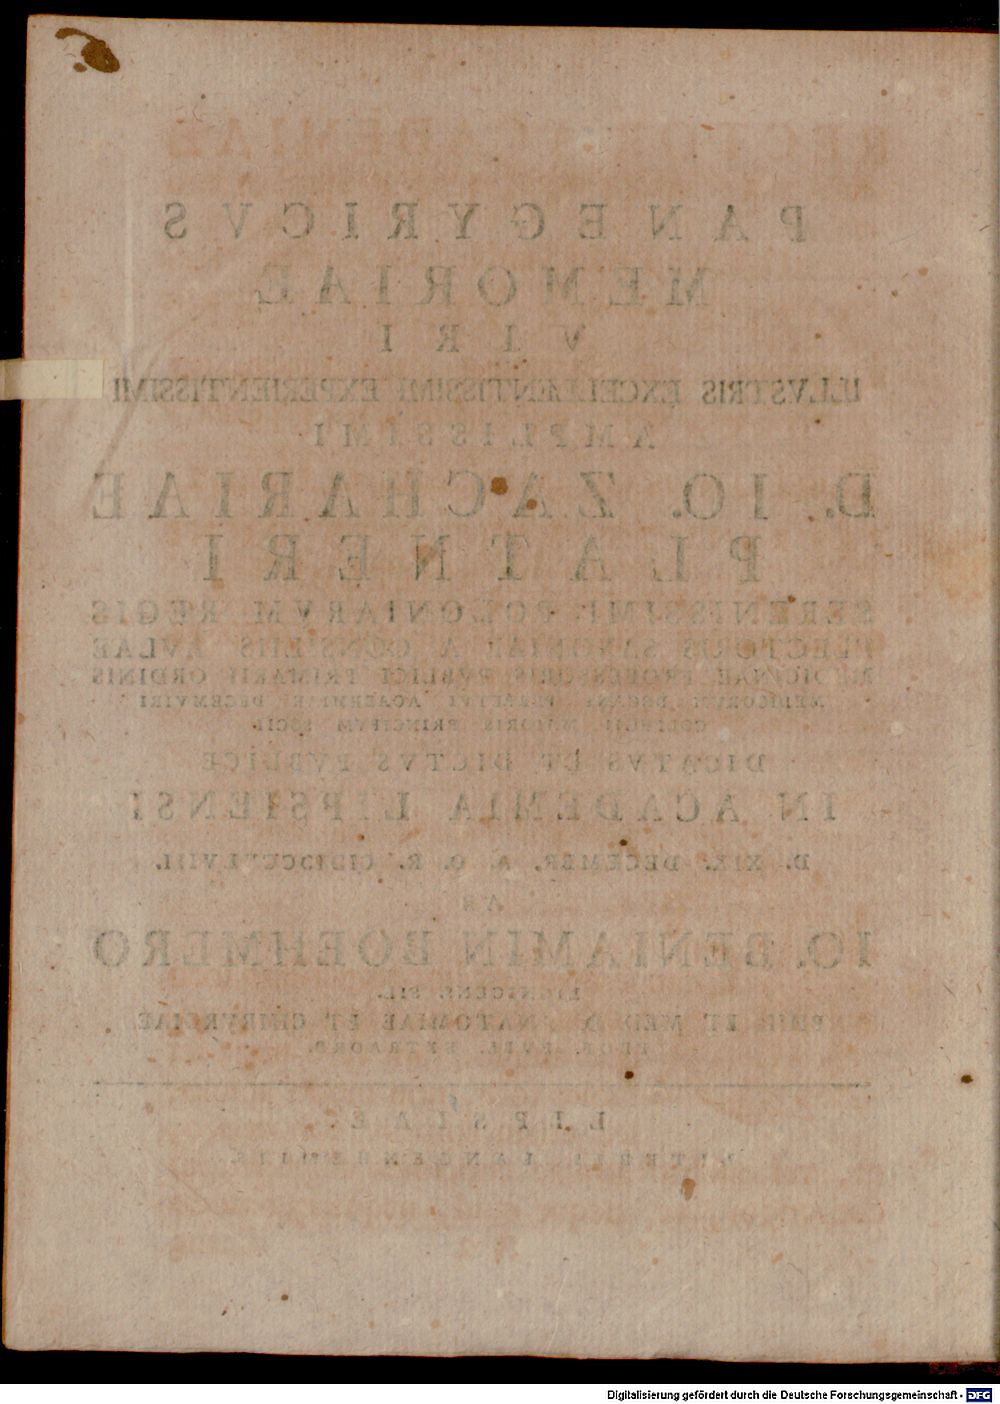 PANEGYRICVS
MEMORIAE
VIRI
ILLVSTRIS EXCELLENTISSIMI EXPERIENTISSIMI
AMPLISSIMI
D. IO. ZACHARIAE
PLATNERI
SERENISSIMI POLONIARVM REGIS
ELECTORIS SAXONIAE A CONSILIIS AVLAE
MEDICINAE PROFESSORIS PVBLICI PRIMARII ORDINIS
MEDICORVM DECANI PERPETVI ACADEMIAE DECEMVIRI
COLLEGII MAIORIS PRINCIPVM SOCII
DICATVS ET DICTVS PVBLICE
IN ACADEMIA LIPSIENSI
D. XIX. DECEMBR. A. O. R.
AB
IO. BENIAMIN BOEHMERO
LIGNICENS. SIL.
PHIL. ET MED. D. ANATOMIAE ET CHIRVRGIAE
PROF. PVBL. EXTRAORD.
LIPSIAE
LITERIS LANGENHEMIIS
Digitalisierung gefördert durch die Deutsche Forschungsgemeinschaft - DFG